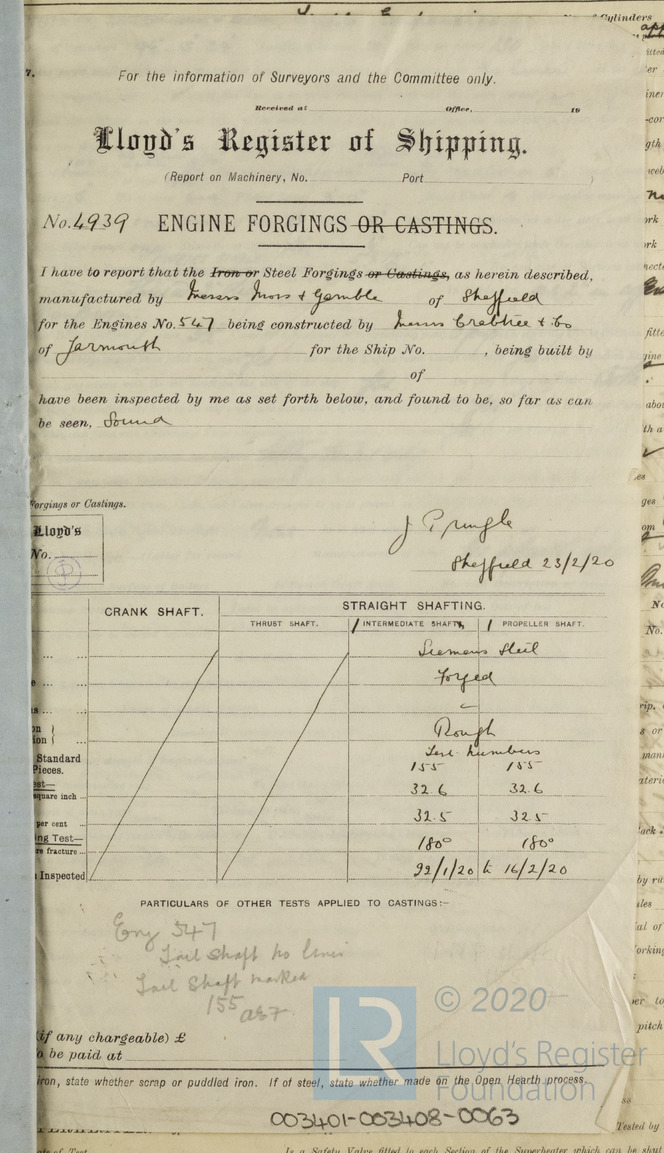 of Cylinders
7.
For the information of Surveyors and the Committee only.
Received at Office, 19
Lloyd's Register of Shipping.
(Report on Machinery, No. Port )
No. 4939 ENGINE FORGINGS OR CASTINGS.
I have to report that the Iron or Steel Forgings or Castings, as herein described,
manufactured by Messrs Moss & Gamble of Sheffield
for the Engines No. 547 being constructed by Messrs Crabtree & Co
of Yarmouth for the Ship No. , being built by
of
have been inspected by me as set forth below, and found to be, so far as can
be seen, Sound
Forgings or Castings.
Lloyd's
No.
J Pringle
Sheffield 23/2/20
CRANK SHAFT. STRAIGHT SHAFTING.
THRUST SHAFT. 1 INTERMEDIATE SHAFT, 1 PROPELLER SHAFT.
Siemens Steel
Forged
Rough
Test numbers
Standard
Pieces. 155 155
square inch 32.6 32.6
per cent 32.5 32.5
ng Test—
re fracture 180° 180°
Inspected 22/1/20 to 16/2/20
PARTICULARS OF OTHER TESTS APPLIED TO CASTINGS:—
Eng 547
Tail Shaft no liner
Tail Shaft marked
155
(if any chargeable) £
be paid at
iron, state whether scrap or puddled iron. If of steel, state whether made on the Open Hearth process.
LR © 2020
Lloyd's Register
Foundation
003401-003408-0063
Tested by
Is a Safety Valve fitted to each Section of the Superheater which can be shut